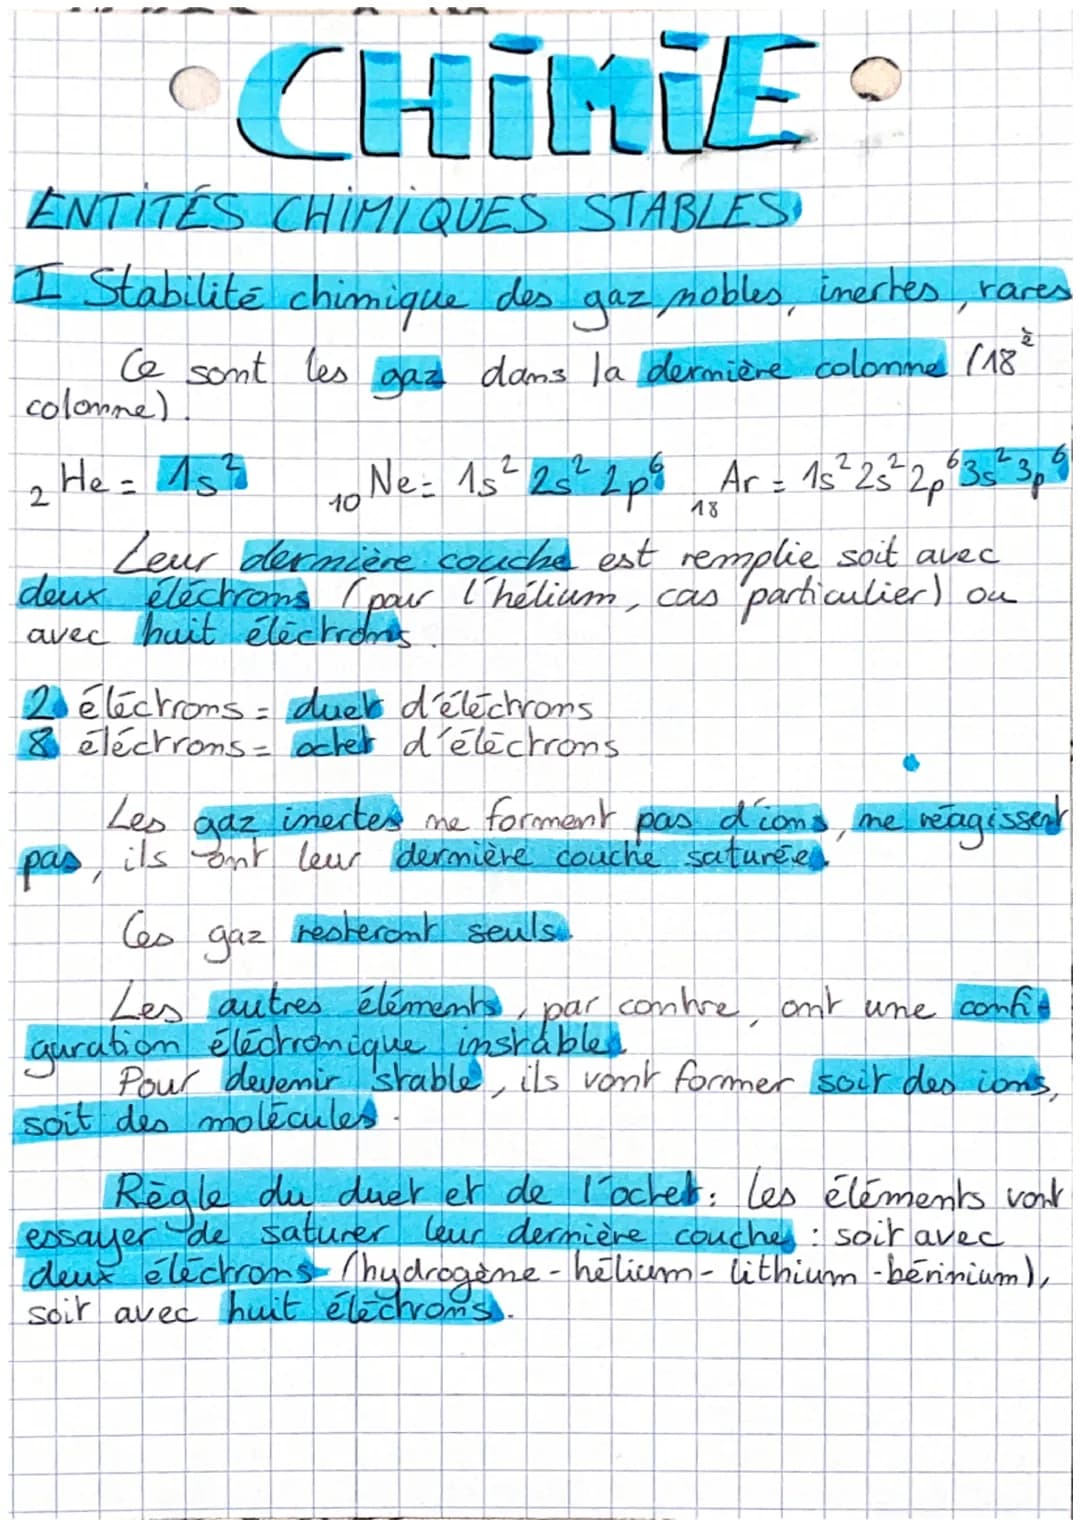 CHIMIE
ENTITÉS CHIMIQUES STABLES
I Stabilité chimique des gaz nobles, inertes, rares
Ce sont les gaz dans la dernière colonne (18è
colonne).
₂He = 1s² ₁₀Ne = 1s² 2s² 2p⁶ ₁₈Ar = 1s² 2s² 2p⁶ 3s² 3p⁶
Leur dernière couche est remplie soit avec
deux éléctrons (pour l'hélium, cas particulier) ou
avec huit éléctrons.
2 éléctrons = duet d'éléctrons
8 éléctrons = octet d'éléctrons
Les gaz inertes ne forment pas d'ions, ne réagissent
pas, ils ont leur dernière couche saturée.
Ces gaz resteront seuls.
Les autres éléments, par contre, ont une confi-
guration éléctronique instable.
Pour devenir stable, ils vont former soit des ions,
soit des molécules.
Règle du duet et de l'octet : Les éléments vont
essayer de saturer leur dernière couche : soit avec
deux éléctrons (hydrogène - hélium - lithium - bérinium),
soit avec huit éléctrons.